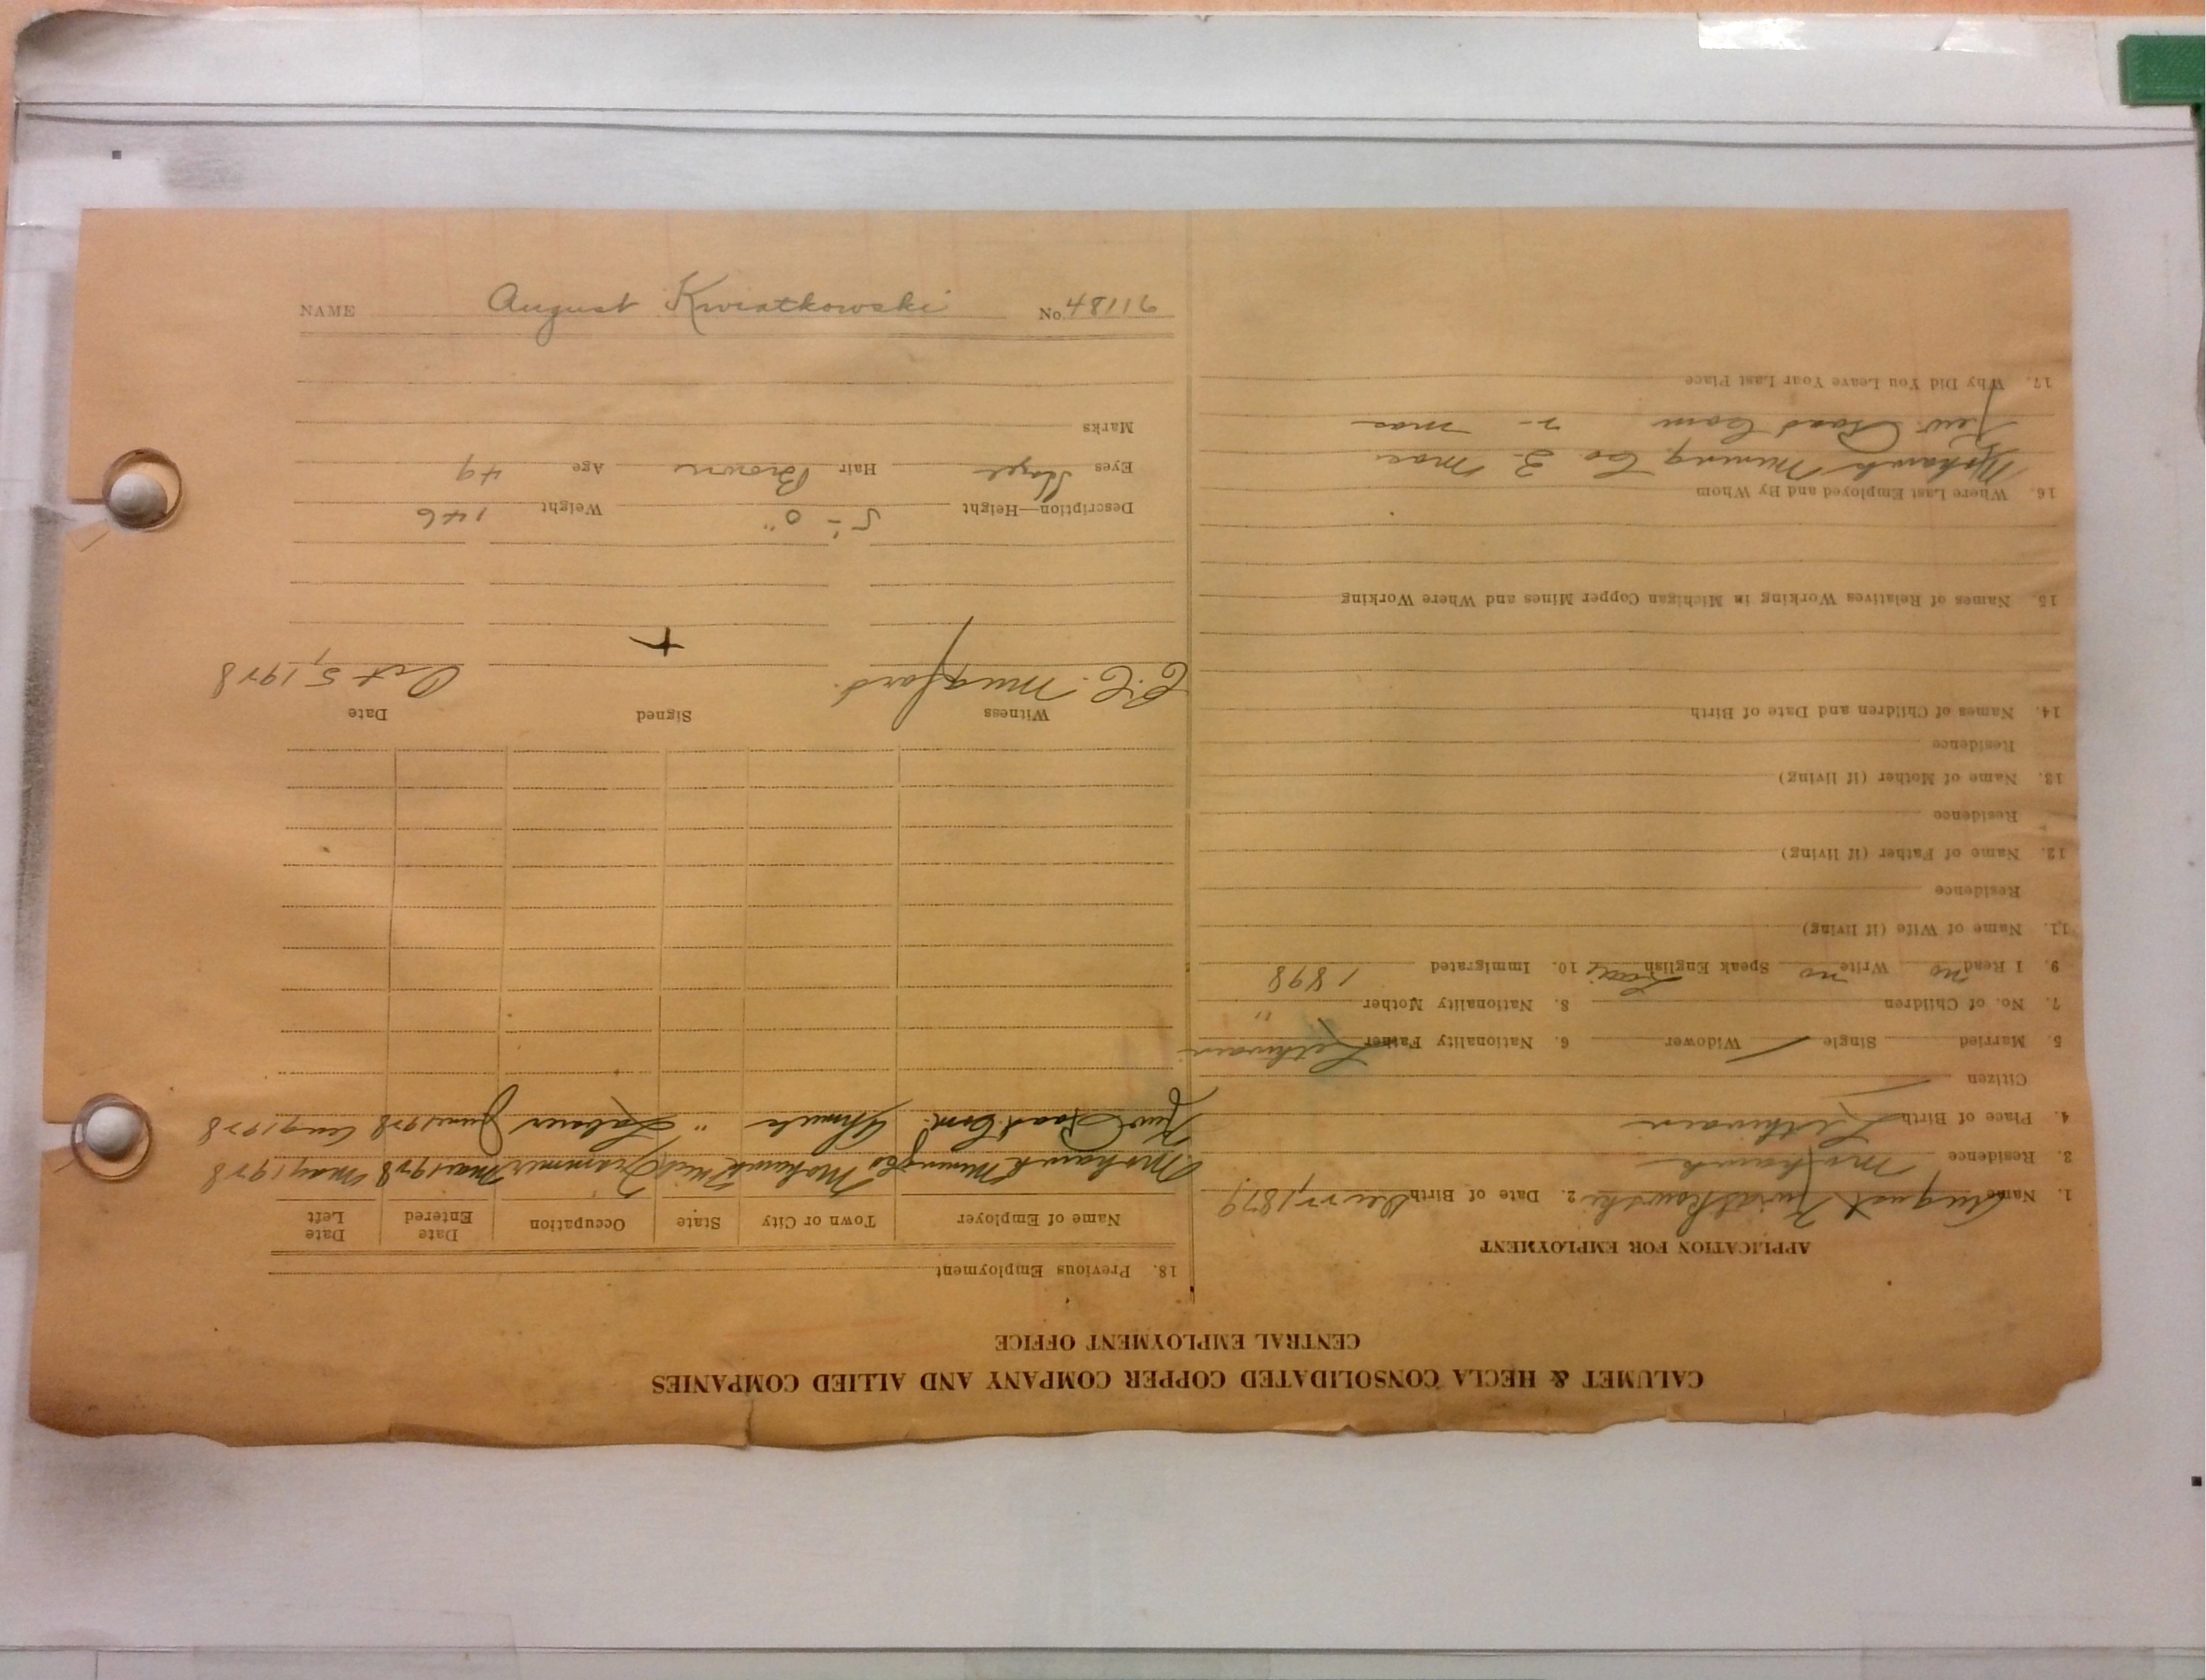 CALUMET & HECLA CONSOLIDATED COPPER COMPANY AND ALLIED COMPANIES
CENTRAL EMPLOYMENT OFFICE
APPLICATION FOR EMPLOYMENT
1. Name August Kwiatkowski 2. Date of Birth 1879
3. Residence Mohawk
4. Place of Birth Lithuain
Citizen
5. Married Single Widower 6. Nationality Father Lithuain
7. No. of Children 8. Nationality Mother "
9. I Read no Write no Speak English 10. Immigrated 1898
11. Name of Wife (if living)
Residence
12. Name of Father (if living)
Residence
13. Name of Mother (if living)
Residence
14. Names of Children and Date of Birth
15 Names of Relatives Working in Michigan Copper Mines and Where Working
16. Where Last Employed and By Whom
Mohawk Mining Co. 3 mos.
Kew. Road Com 2 - mos
17. Why Did You Leave Your Last Place
18. Previous Employment
Name of Employer Town or City State Occupation Date Entered Date Left
Mohawk Mining Co Mohawk Mich Trammer Mar 1928 May 1928
Kew. Road Com. Ahmeek " Laborer June 1928 Aug 1928
Witness Signed Date
C.C. Mugford. + Oct 5, 1928
Description—Height 5'-0" Weight 146
Eyes Hazel Hair Brown Age 49
Marks
NAME August Kwiatkowski No. 48116